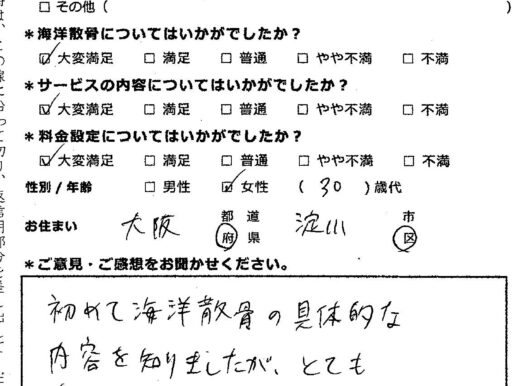 □ その他（　　　　　）
＊海洋散骨についてはいかがでしたか？
☑ 大変満足　□ 満足　□ 普通　□ やや不満　□ 不満
＊サービスの内容についてはいかがでしたか？
☑ 大変満足　□ 満足　□ 普通　□ やや不満　□ 不満
＊料金設定についてはいかがでしたか？
☑ 大変満足　□ 満足　□ 普通　□ やや不満　□ 不満
性別 / 年齢　□ 男性　☑ 女性　（ 30 ）歳代
お住まい　大阪　都 道 府 県　淀川　市 区
＊ご意見・ご感想をお聞かせください。
初めて海洋散骨の具体的な
内容を知りましたが、とても